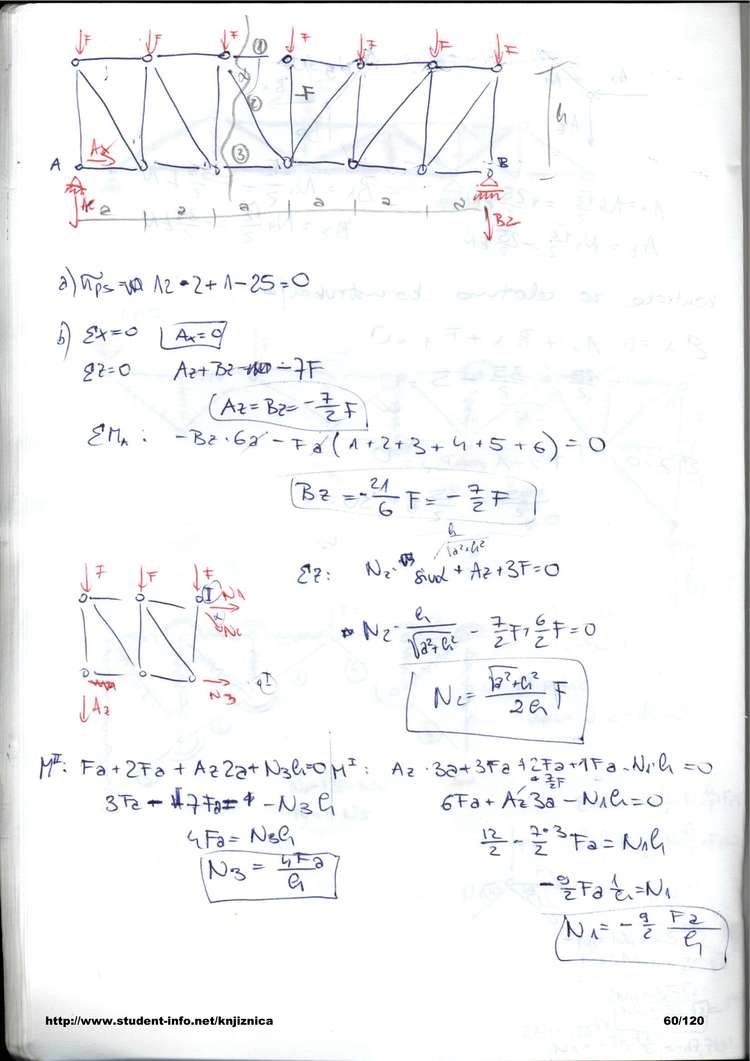 F F F F F F F
1
α
2
F
h
A Ax 3 B
Az a a a a a a Bz
a) ñps = 12·2+1-25=0
b) Σx=0 Ax=0
Σz=0 Az+Bz = -7F
Az=Bz=-7/2 F
ΣMA: -Bz·6a - Fa(1+2+3+4+5+6)=0
Bz = -21/6 F = -7/2 F
h/√a²+h²
Σz: Nz· sinα + Az+3F=0
F F F
I N1
α
N2
Nz· h/√a²+h² - 7/2 F + 6/2 F=0
N3 I
Az
Nz = √a²+h²/2h F
MII: Fa+2Fa+Az2a+N3h=0
3Fa - 7Fa = -N3h
4Fa = N3h
N3 = 4Fa/h
MI: Az·3a+3Fa+2Fa+1Fa-N1·h=0
-7/2F
6Fa+Az3a-N1h=0
12/2 - 7·3/2 Fa = N1h
-9/2 Fa 1/h = N1
N1 = -9/2 Fa/h
http://www.student-info.net/knjiznica 60/120